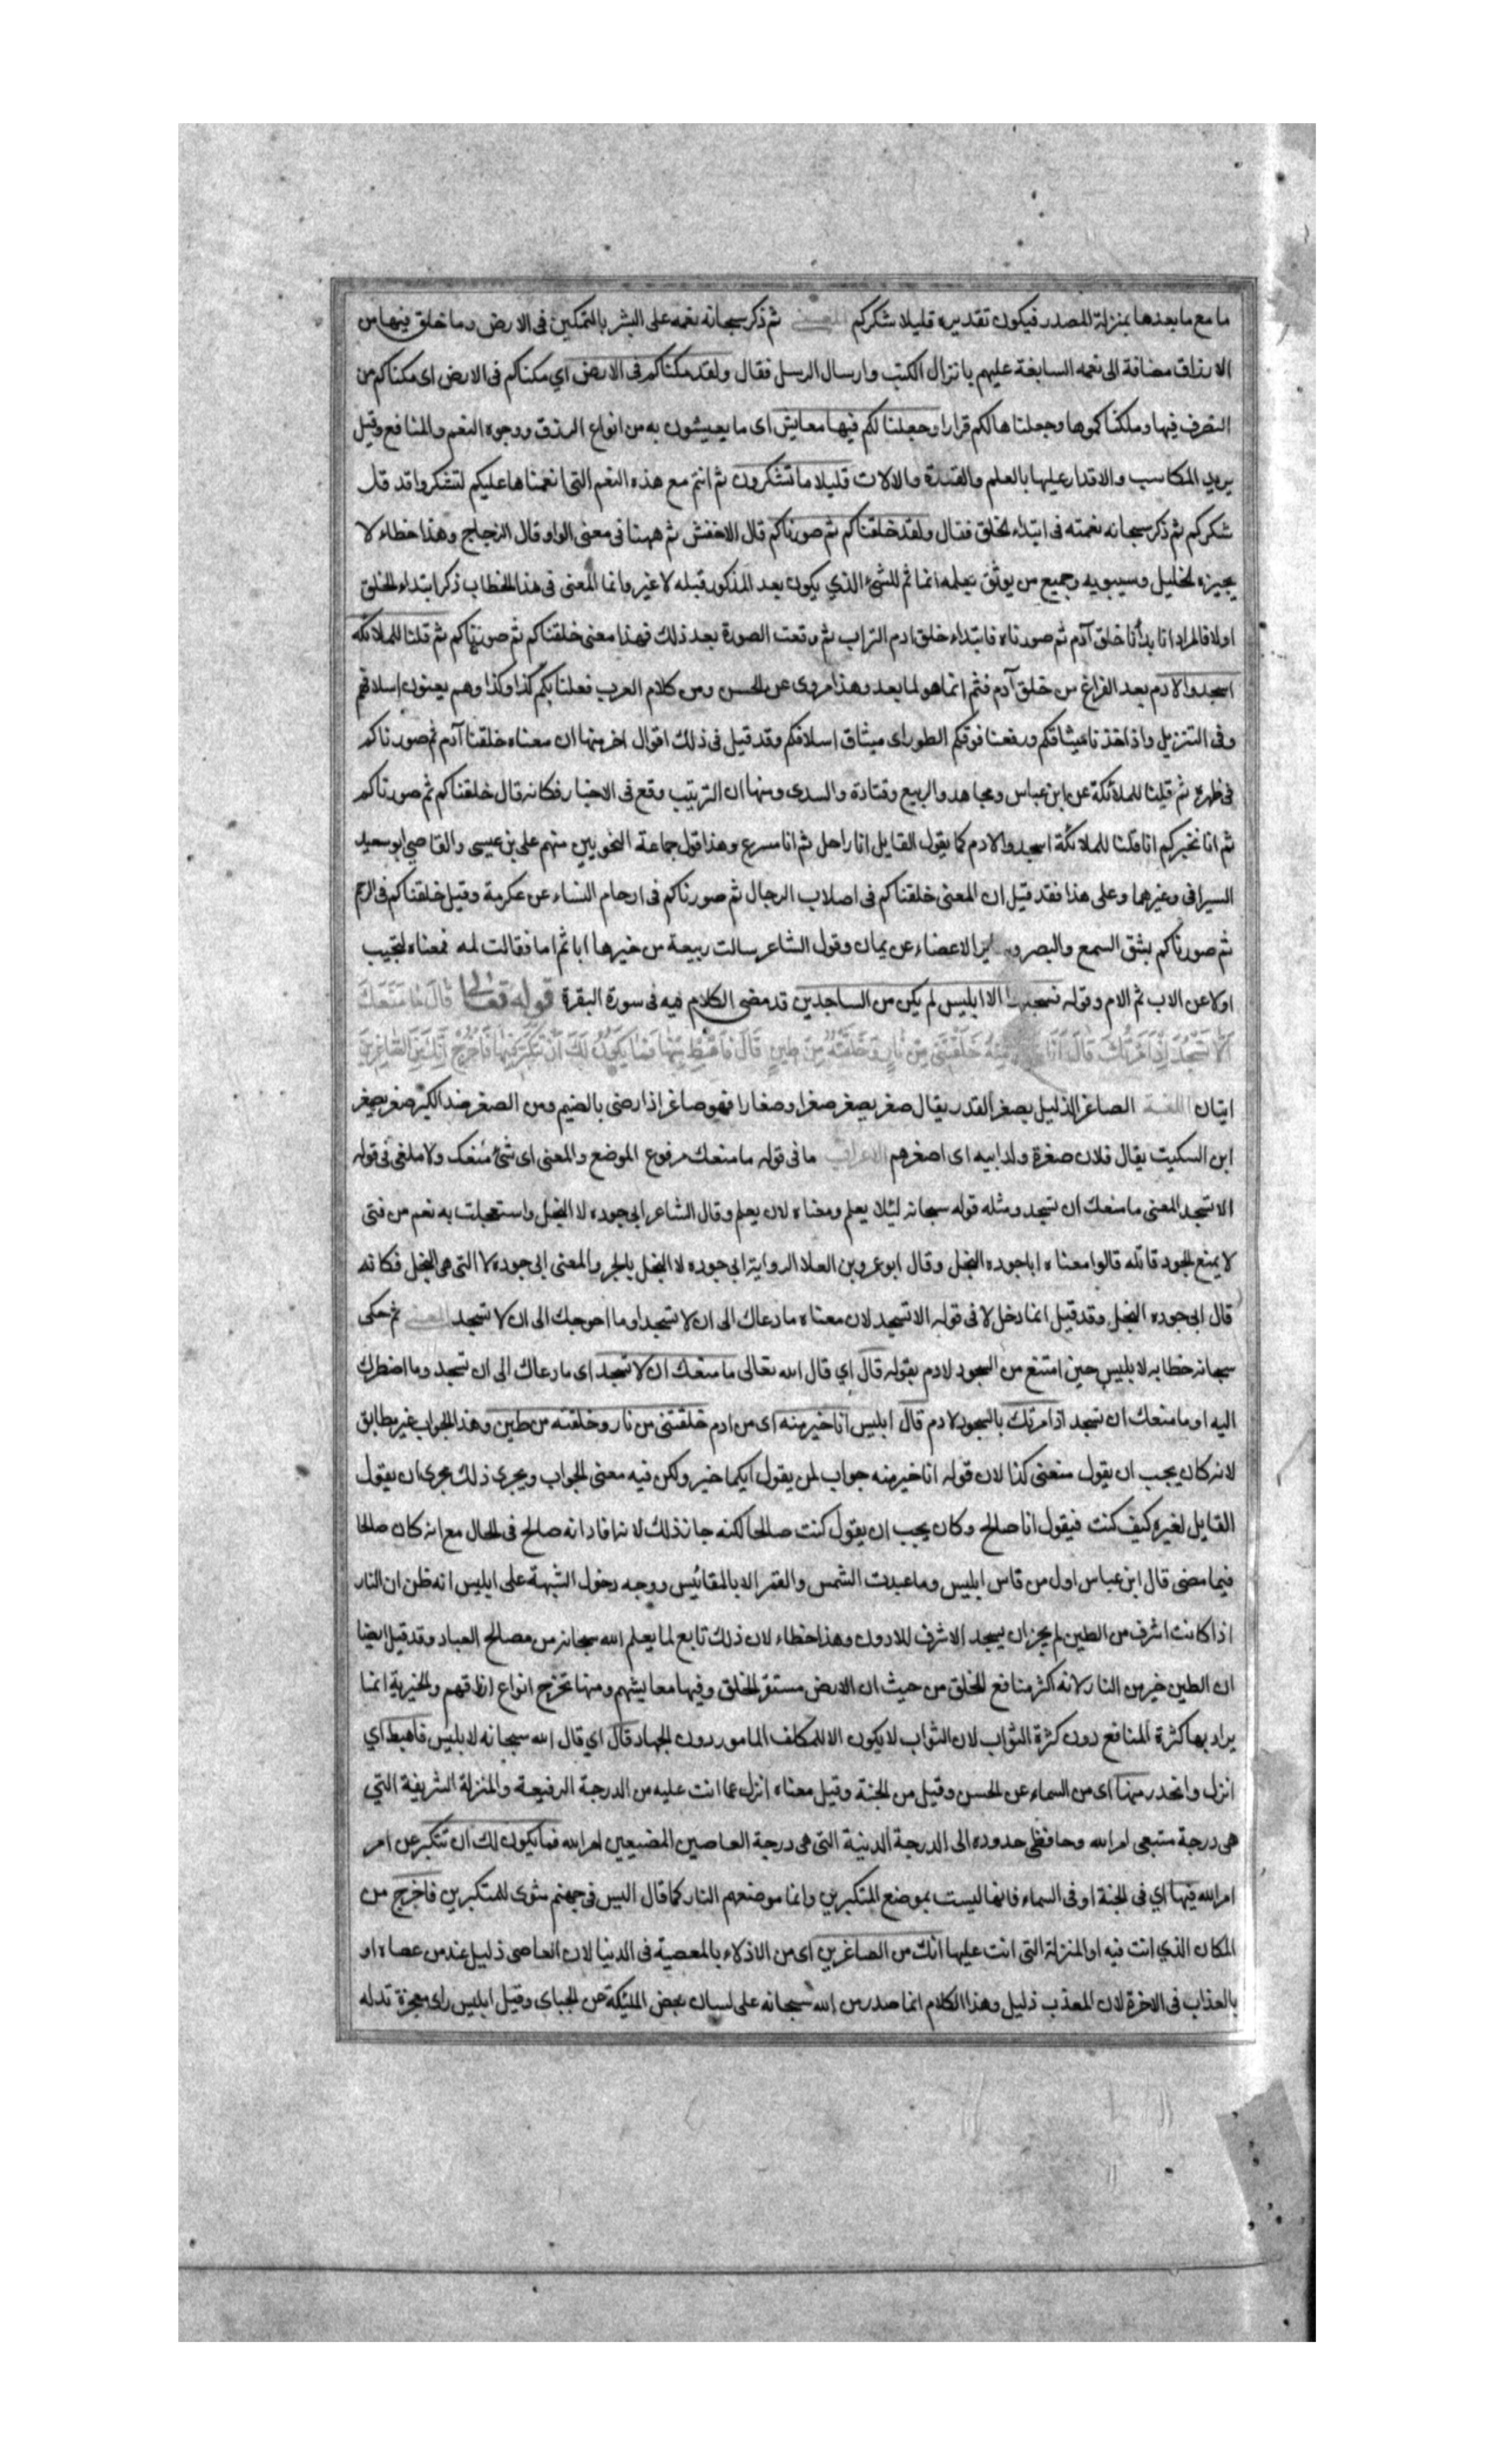 ما مع ما بعدها بمنزلة المصدر فيكون تقديره قليلا شكركم المعنى ثم ذكر سبحانه نعمه على البشر بالتمكين فى الارض وما خلق فيها من
الارزاق مضافة الى نعمه السابغة عليهم بانزال الكتب وارسال الرسل فقال ولقد مكناكم فى الارض اي مكناكم فى الارض اى مكناكم من
التصرف فيها وملكناكموها وجعلناها لكم قرارا وجعلنا لكم فيها معايش اى ما يعيشون به من انواع الرزق ووجوه النعم والمنافع وقيل
يريد المكاسب والاقدار عليها بالعلم والقدرة والالات قليلا ما تشكرون ثم انتم مع هذه النعم التى انعمناها عليكم لتشكروا قد قل
شكركم ثم ذكر سبحانه نعمته فى ابتداء الخلق فقال ولقد خلقناكم ثم صورناكم قال الاخفش ثم ههنا فى معنى الواو قال الزجاج وهذا خطاء لا
يجيزه الخليل وسيبويه وجميع من يوثق بعلمه انما ثم للشئ الذي يكون بعد المذكور قبله لا غير وانما المعنى فى هذا الخطاب ذكر ابتداء الخلق
اولا فالمراد انا بدأنا خلق آدم ثم صورناه فابتداء خلق ادم التراب ثم وقعت الصورة بعد ذلك فهذا معنى خلقناكم ثم صورناكم ثم قلنا للملائكة
اسجدوا لادم بعد الفراغ من خلق آدم فثم انما هو لما بعد وهذا مروى عن الحسن ومن كلام العرب فعلنا بكم كذا وكذا وهم يعنون اسلافهم
وفى التنزيل واذ اخذنا ميثاقكم ورفعنا فوقكم الطور اى ميثاق اسلافكم وقد قيل فى ذلك اقوال اخر منها ان معناه خلقنا آدم ثم صورناكم
فى ظهره ثم قلنا للملائكة عن ابن عباس ومجاهد والربيع وقتادة والسدى ومنها ان الترتيب وقع فى الاخبار فكانه قال خلقناكم ثم صورناكم
ثم انا نخبركم انا قلنا للملائكة اسجدوا لادم كما يقول القايل انا راحل ثم انا مسرع وهذا قول جماعة النحويين منهم على بن عيسى والقاضي ابو سعيد
السيرافى وغيرهما وعلى هذا فقد قيل ان المعنى خلقناكم فى اصلاب الرجال ثم صورناكم فى ارحام النساء عن عكرمة وقيل خلقناكم فى الرحم
ثم صورناكم بشق السمع والبصر وساير الاعضاء عن يمان وقول الشاعر سالت ربيعة من خيرها ابا ثم اما فقالت لمه فمعناه لتجيب
اولا عن الاب ثم الام وقوله فسجدوا الا ابليس لم يكن من الساجدين قد مضى الكلام فيه فى سورة البقرة قوله تعالى قال ما منعك
الا تسجد اذ امرتك قال انا خير منه خلقتنى من نار وخلقته من طين قال فاهبط منها فما يكون لك ان تتكبر فيها فاخرج انك من الصاغرين
ايتان اللغة الصاغر الذليل بصغر القدر يقال صغر يصغر صغرا وصغارا فهو صاغر اذا رضى بالضيم ومن الصغر ضد الكبر صغر يصغر
ابن السكيت يقال فلان صغرة ولد ابيه اى اصغرهم الاعراب ما فى قوله ما منعك مرفوع الموضع والمعنى اى شئ منعك ولا ملغى فى قوله
الا تسجد المعنى ما منعك ان تسجد ومثله قوله سبحانه لئلا يعلم ومعناه لان يعلم وقال الشاعر ابى جوده لا البخل واستعجلت به نعم من فتى
لا يمنع الجود قاتله قالوا معناه ابا جوده البخل وقال ابو عمرو بن العلا الرواية ابى جوده لا البخل بالجر والمعنى ابى جوده لا التى هى البخل فكانه
قال ابى جوده البخل وقد قيل انما دخل لا فى قوله الا تسجد لان معناه ما دعاك الى ان لا تسجد او ما احوجك الى ان لا تسجد المعنى ثم حكى
سبحانه خطابه لابليس حين امتنع من السجود لادم بقوله قال اي قال الله تعالى ما منعك ان لا تسجد اى ما دعاك الى ان تسجد وما اضطرك
اليه او ما منعك ان تسجد اذ امرتك بالسجود لادم قال ابليس انا خير منه اى من ادم خلقتنى من نار وخلقته من طين وهذا الجواب غير مطابق
لانه كان يجب ان يقول منعنى كذا لان قوله انا خير منه جواب لمن يقول ايكما خير ولكن فيه معنى الجواب ويجرى ذلك مجرى ان يقول
القايل لغيره كيف كنت فيقول انا صالح وكان يجب ان يقول كنت صالحا لكنه جاز ذلك لانه افاد انه صالح فى الحال مع انه كان صالحا
فيما مضى قال ابن عباس اول من قاس ابليس وما عبدت الشمس والقمر الا بالمقائيس ووجه دخول الشبهة على ابليس انه ظن ان النار
اذا كانت اشرف من الطين لم يجز ان يسجد الاشرف للادون وهذا خطاء لان ذلك تابع لما يعلم الله سبحانه من مصالح العباد وقد قيل ايضا
ان الطين خير من النار لانه اكثر منافع للخلق من حيث ان الارض مستقر الخلق وفيها معايشهم ومنها تخرج انواع ارزاقهم والخيرية انما
يراد بها كثرة المنافع دون كثرة الثواب لان الثواب لا يكون الا للمكلف المامور دون الجهاد قال اي قال الله سبحانه لابليس فاهبط اي
انزل وانحدر منها اى من السماء عن الحسن وقيل من الجنة وقيل معناه انزل عما انت عليه من الدرجة الرفيعة والمنزلة الشريفة التي
هى درجة متبعى امر الله وحافظى حدوده الى الدرجة الدنية التى هى درجة العاصين المضيعين امر الله فما يكون لك ان تتكبر عن امر
امر الله فيها اي فى الجنة او فى السماء فانها ليست بموضع المتكبرين وانما موضعهم النار كما قال اليس فى جهنم مثوى للمتكبرين فاخرج من
المكان الذي انت فيه او المنزلة التى انت عليها انك من الصاغرين اى من الاذلاء بالمعصية فى الدنيا لان العاصى ذليل عند من عصاه او
بالعذاب فى الاخرة لان المعذب ذليل وهذا الكلام انما صدر من الله سبحانه على لسان بعض الملئكة عن الجباى وقيل ابليس راى معجزة تدله